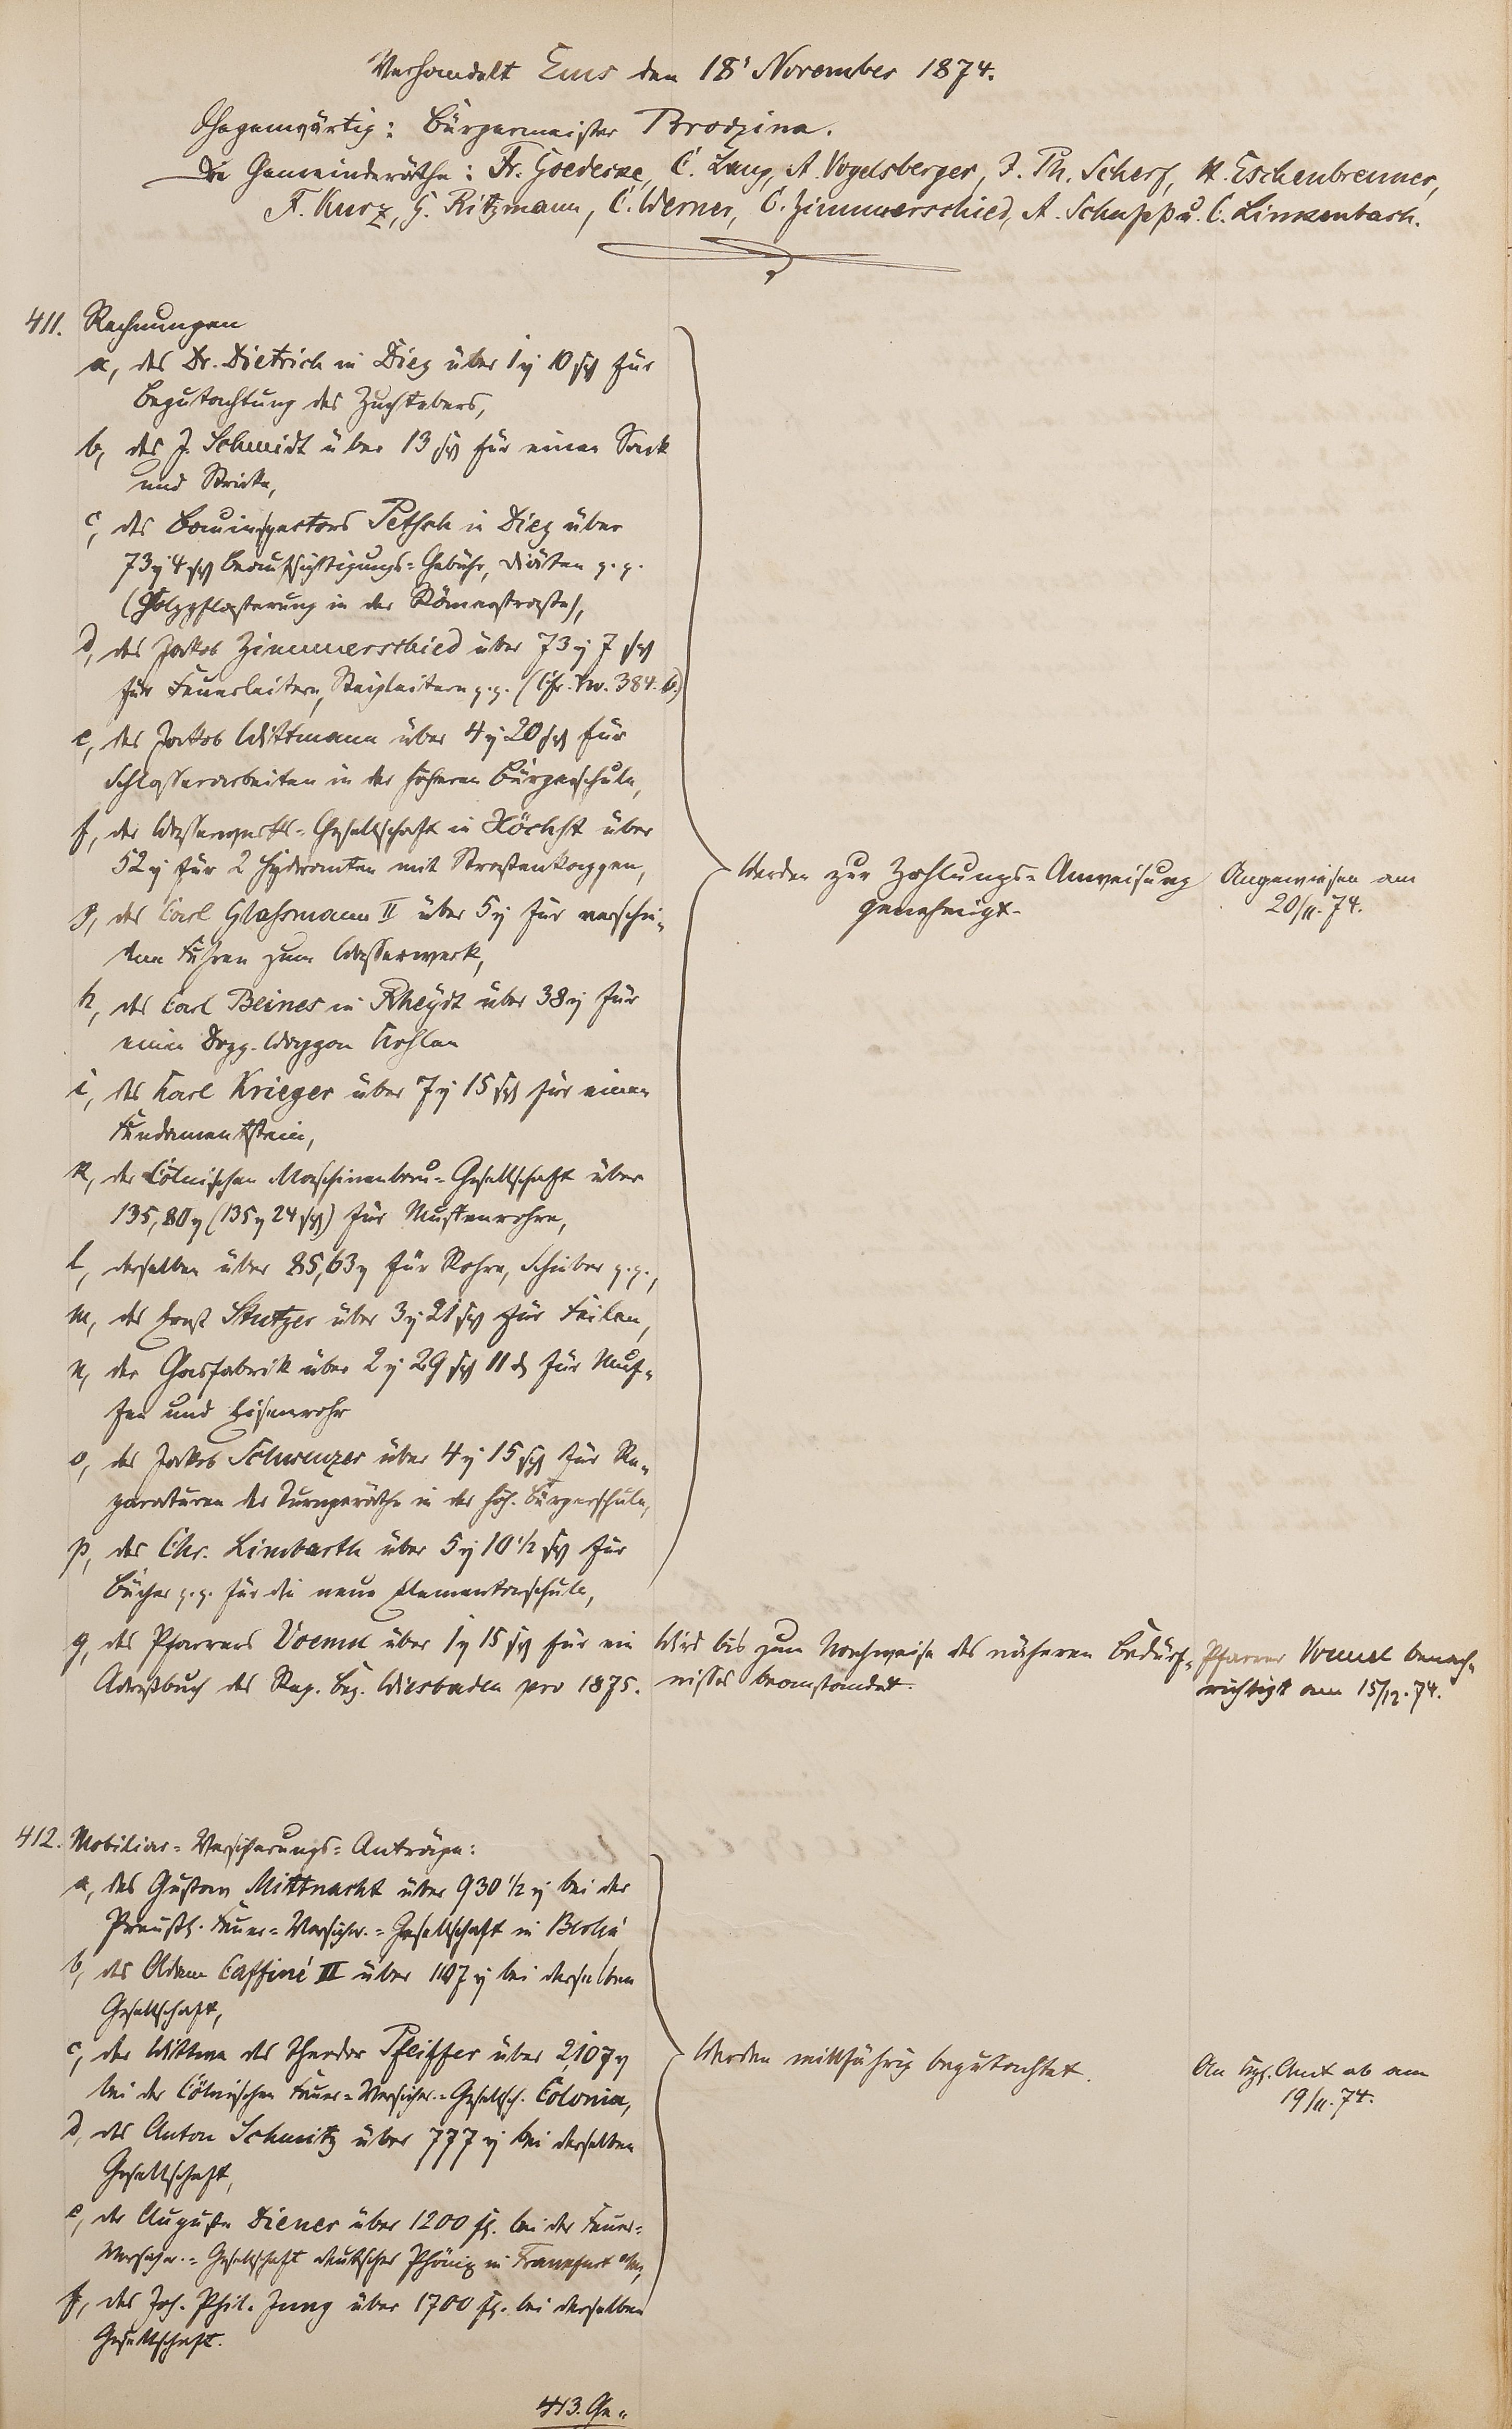 Verhandelt Ems den 18' November 1874.
Gegenwärtig: Bürgermeister Brodzina.
Die Gemeinderäthe: Fr. Goedecke, C. Lang, A. Vogelsberger, J. Ph. Scherf, H. Eschenbrenner,
F. Kurz, G. Ritzmann, C. Werner, C. Zimmerschied, A. Schupp u. C. Linkenbach.
411. Rechnungen
a, des Dr. Dietrich in Diez über 1 rℓ 10 sgr für
Begutachtung des Zuchtebers,
b, des J. Schmidt über 13 sgr für einen Sack
und Stricke,
c, des Bauinspectors Petsch in Diez über
73 rℓ 4 sgr Beaufsichtigungs=Gebühr, Diäten p. p.
(Holzpflasterung in der Römerstraße),
d, des Jakob Zimmerschied über 73 rℓ 7 sgr
für Feuerleitern, Steigleitern p. p. (Cfr. No. 384. b.)
e, des Jakob Wittmann über 4 rℓ 20 sgr für
Schlosserarbeiten in der höheren Bürgerschule,
f, der Wasserwerks=Gesellschaft in Höchst über
52 rℓ für 2 Hydranten mit Straßenkappen,
g, des Carl Glasmann II über 5 rℓ für verschie=
dene Fuhren zum Wasserwerk,
h, des Carl Beines in Rheydt über 38 rℓ für
einen Dopp. Waggon Kohlen
i, des Karl Krieger über 7 rℓ 15 sgr für einen
Fundamentstein,
k, der Cölnischen Maschinenbau=Gesellschaft über
135,80 rℓ (135 rℓ 24 sgr) für Muffenrohre,
l, derselben über 85,63 rℓ für Rohre, Schieber p. p.,
m, des Ernst Stutzer über 3 rℓ 21 sgr für Feilen,
n, der Gasfabrik über 2 rℓ 29 sgr 11 d für Muf=
fen und Eisenrohr
o, des Jakob Schwenzer über 4 rℓ 15 sgr für Re=
paraturen der Turngeräthe in der höh. Bürgerschule,
p, des Chr. Limbarth über 5 rℓ 10 1/2 sgr für
Bücher p. p. für die neue Elementarschule,
Werden zur Zahlungs=Anweisung
genehmigt.
Angewiesen am
20/11. 74.
q, des Pfarrers Voemel über 1 rℓ 15 sgr für ein
Adreßbuch des Reg. Bez. Wiesbaden pro 1875.
Wird bis zum Nachweise des näheren Bedürf=
nisses beanstandet.
Pfarrer Vömel benach=
richtigt am 15/12. 74.
412. Mobiliar=Versicherungs=Anträge:
a, des Gustav Mittnacht über 930 1/2 rℓ bei der
Preuß. Feuer=Versicher.=Gesellschaft in Berlin
b, des Adam Caffiné III über 1107 rℓ bei derselben
Gesellschaft,
c, der Wittwe des Theodor Pfeiffer über 2,107 rℓ
bei der Cölnischen Feuer=Versicher.=Gesellsch. Colonia,
d, des Anton Schmitz über 777 rℓ bei derselben
Gesellschaft,
e, der Auguste Diener über 1200 fl. bei der Feuer=
Versicher.=Gesellschaft deutscher Phönix in Frankfurt a/M,
f, des Joh. Phil. Jung über 1700 fl. bei derselben
Gesellschaft.
Werden willfährig begutachtet.
An Kgl. Amt ab am
19/11. 74.
413. Ge=